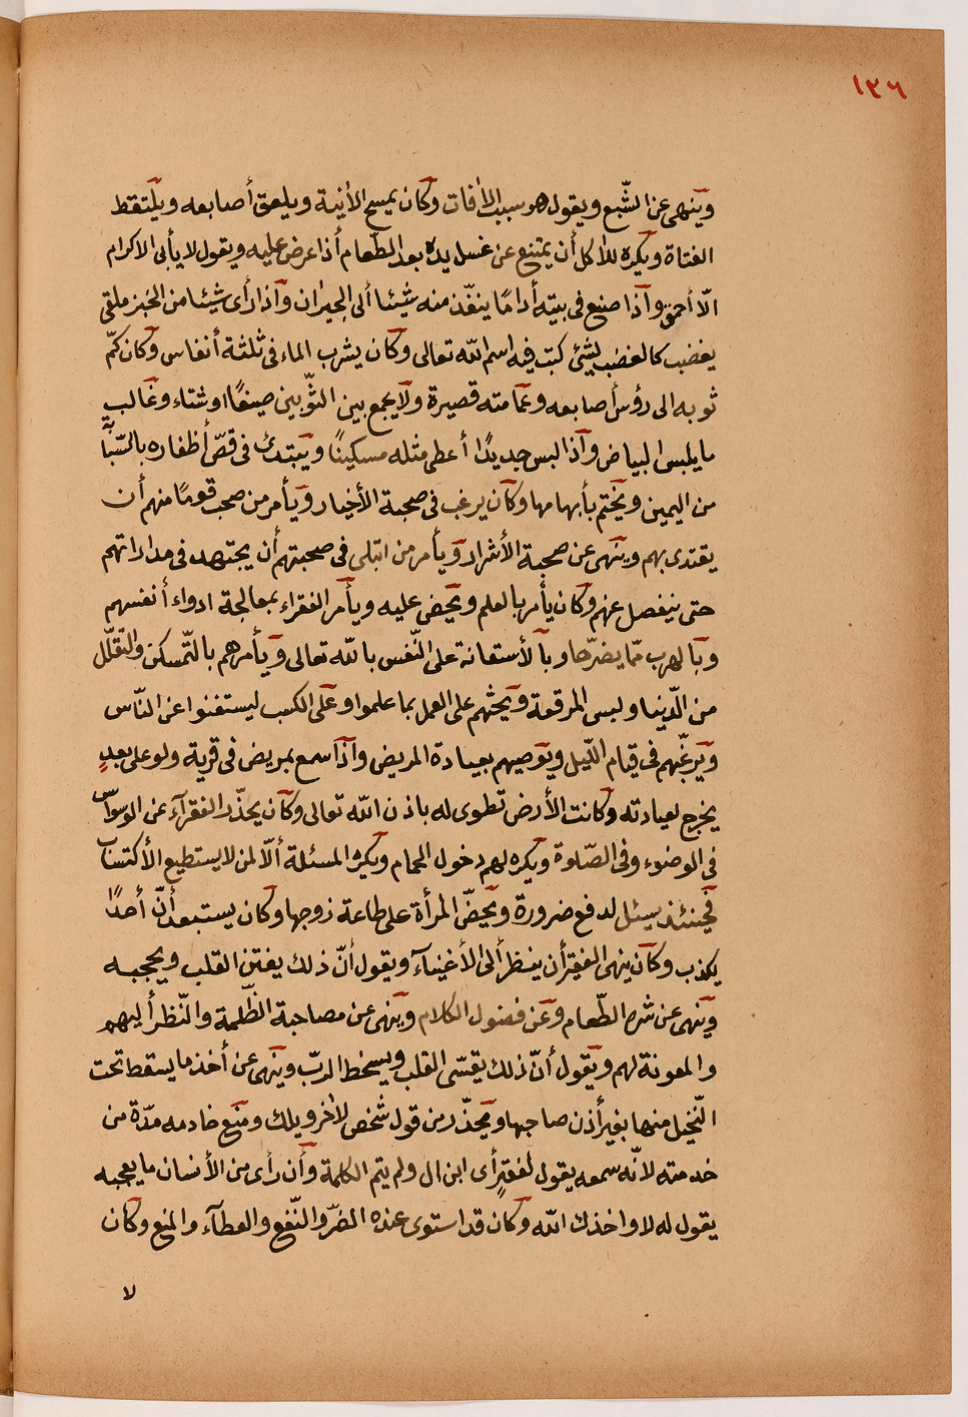 ١٣٦
وينهى عن الشّبع ويقول هو سبب الأفات وكان يمسح الأنية ويلعق أصابعه ويلتقط
الفتاة ويكره للأكل أن يمتنع عن غسل يده بعد الطّعام أذا عرض عليه ويقول لا يأبى الاكرام
الّا أحمق وأذا صنع فى بيته أدامًا ينفّذ منه شيئا ألى الجيران وأذا رأى شيئا من الخبز ملقى
يغضب كالغضب لشئ كبت فيه اسم اللّه تعالى وكان يشرب الماء فى ثلثة أنفاس وكان كمّ
ثوبه الى رؤس أصابعه وعمامته قصيرة ولا يجمع بين الثّوبين صيفًا او شتاء وغالب
ما يلبس البياض وأذا لبس جديدًا أعطى مثله مسكينًا ويبتدئ فى قصّ أظفاره بالسّبابة
من اليمين ويختم بأبهامها وكان يرغب فى صحبة الأخيار ويأمر من صحب قومًا منهم أن
يقتدى بهم وينهى عن صحبة الأشرار ويأمر من ابتلى فى صحبتهم أن يجتهد فى مداراتهم
حتى ينفصل عنهم وكان يأمر بالعلم ويحض عليه ويأمر الفقراء بمعالجة ادواء أنفسهم
وبالهرب ممّا يضرّها وبالأستعانة على النّفس باللّه تعالى ويأمرهم بالتّمسكن والتّقلّل
من الدّنيا ولبس المرقعة ويحثهم على العمل بما علموا وعلى الكسب ليستغنوا عن النّاس
ويرغّبهم فى قيام اللّيل ويوصيهم بعيادة المريض وأذا سمع بمريض فى قرية ولو على بعدٍ
يخرج لعيادته وكانت الأرض تطوى له باذن اللّه تعالى وكان يحذّر الفقرآء عن الوسواس
فى الوضوء وفى الصّلوة ويكره لهم دخول الحمام ويكره المسئلة ألّا لمن لا يستطيع الأكتساب
فحينئذ يسئل لدفع ضرورة ويحضّ المرأة على طاعة زوجها وكان يستبعد أنّ أحدًا
يكذب وكان ينهى الفقير أن ينظر ألى الأغنيآء ويقول أنّ ذلك يفتن القلب ويحجبه
وينهى عن شره الطّعام وعن فضول الكلام وينهى عن مصاحبة الظّلمة والنّظر أليهم
والمعونة لهم ويقول أنّ ذلك يقسّى القلب ويسخط الربّ وينهى عن أخذ ما يسقط تحت
النّخيل منها بغير أذن صاحبها ويحذّر من قول شخص لأخر ويلك ومنع خادمه مدّة من
خدمته لانّه سمعه يقول لفقيرٍ أى ابن ال ولم يتم الكلمة وأن رأى من الأنسان ما يعجبه
يقول له لا واخذك اللّه وكان قد استوى عنده الضرّ والنّفع والعطآء والمنع وكان
لا